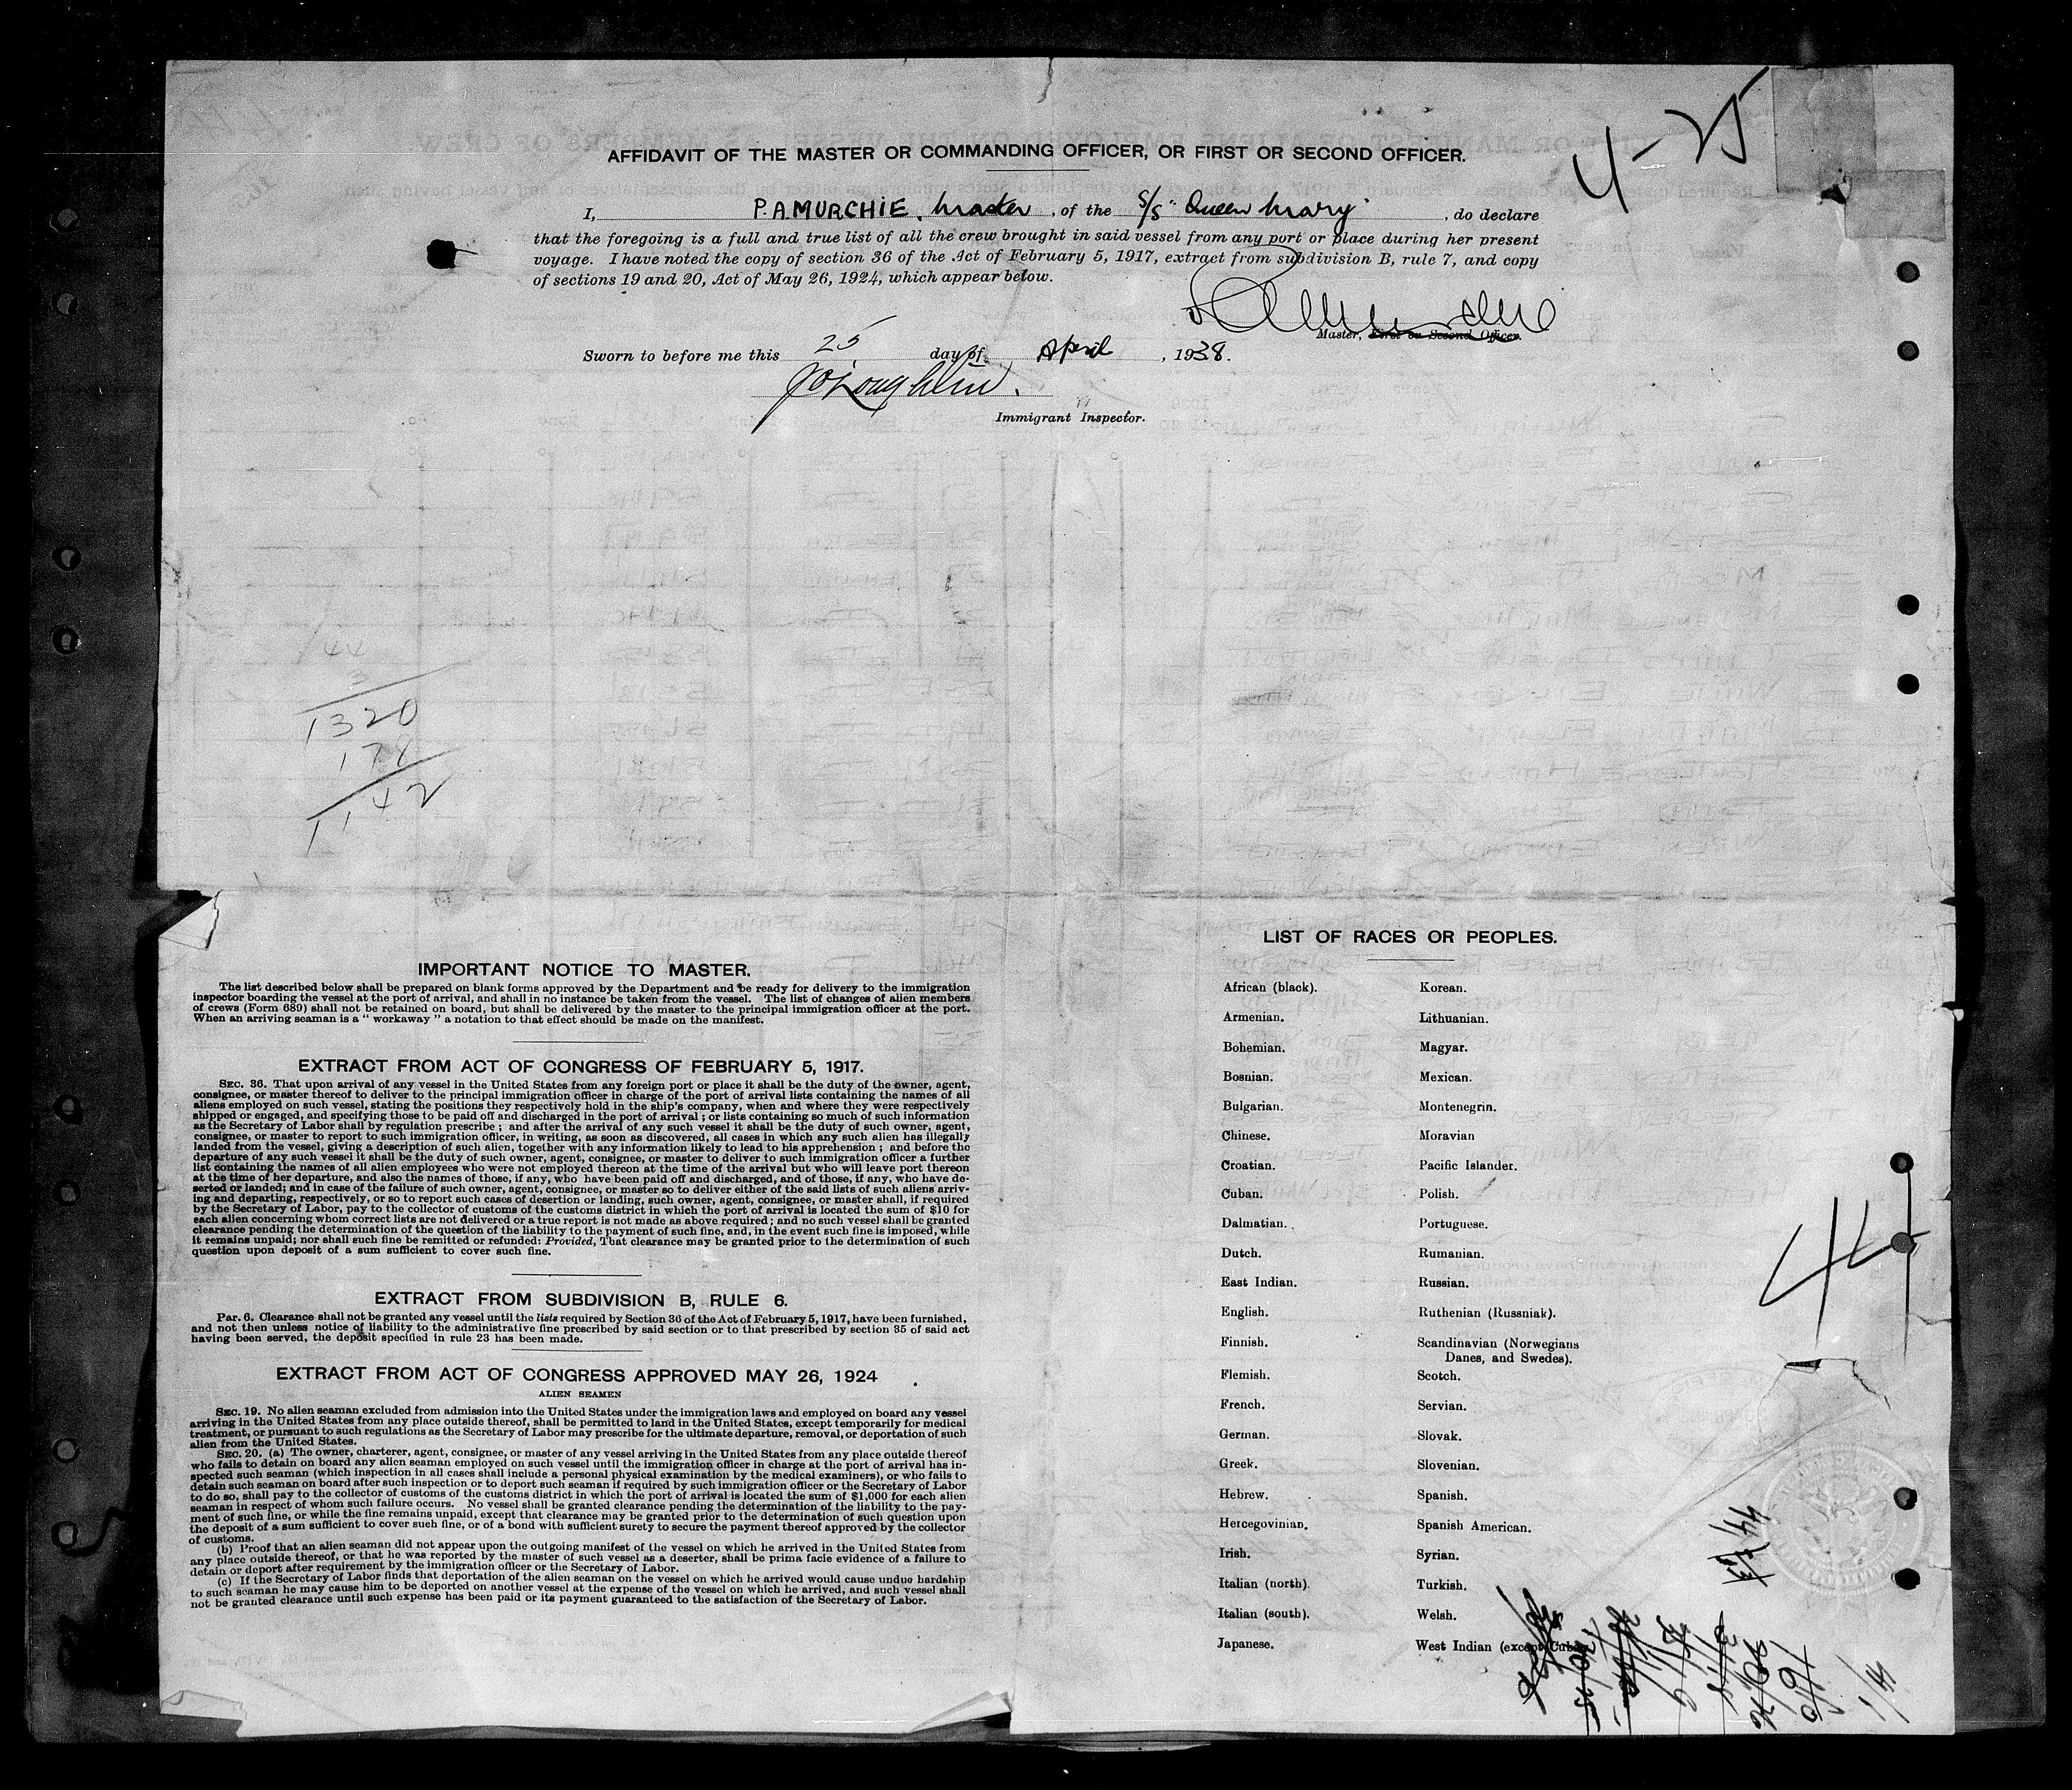 4-25
AFFIDAVIT OF THE MASTER OR COMMANDING OFFICER, OR FIRST OR SECOND OFFICER.
I, P. A. MURCHIE, Master, of the S/S "Queen Mary", do declare
that the foregoing is a full and true list of all the crew brought in said vessel from any port or place during her present
voyage. I have noted the copy of section 36 of the Act of February 5, 1917, extract from subdivision B, rule 7, and copy
of sections 19 and 20, Act of May 26, 1924, which appear below.
Master, First or Second Officer.
Sworn to before me this 25 day of April, 1938.
Immigrant Inspector.
44
3
1320
178
1142
IMPORTANT NOTICE TO MASTER.
The list described below shall be prepared on blank forms approved by the Department and be ready for delivery to the immigration
inspector boarding the vessel at the port of arrival, and shall in no instance be taken from the vessel. The list of changes of alien members
of crews (Form 689) shall not be retained on board, but shall be delivered by the master to the principal immigration officer at the port.
When an arriving seaman is a " workaway " a notation to that effect should be made on the manifest.
EXTRACT FROM ACT OF CONGRESS OF FEBRUARY 5, 1917.
SEC. 36. That upon arrival of any vessel in the United States from any foreign port or place it shall be the duty of the owner, agent,
consignee, or master thereof to deliver to the principal immigration officer in charge of the port of arrival lists containing the names of all
aliens employed on such vessel, stating the positions they respectively hold in the ship's company, when and where they were respectively
shipped or engaged, and specifying those to be paid off and discharged in the port of arrival ; or lists containing so much of such information
as the Secretary of Labor shall by regulation prescribe ; and after the arrival of any such vessel it shall be the duty of such owner, agent,
consignee, or master to report to such immigration officer, in writing, as soon as discovered, all cases in which any such alien has illegally
landed from the vessel, giving a description of such alien, together with any information likely to lead to his apprehension ; and before the
departure of any such vessel it shall be the duty of such owner, agent, consignee, or master to deliver to such immigration officer a further
list containing the names of all alien employees who were not employed thereon at the time of the arrival but who will leave port thereon
at the time of her departure, and also the names of those, if any, who have been paid off and discharged, and of those, if any, who have de-
serted or landed; and in case of the failure of such owner, agent, consignee, or master so to deliver either of the said lists of such aliens arriv-
ing and departing, respectively, or so to report such cases of desertion or landing, such owner, agent, consignee, or master shall, if required
by the Secretary of Labor, pay to the collector of customs of the customs district in which the port of arrival is located the sum of $10 for
each alien concerning whom correct lists are not delivered or a true report is not made as above required; and no such vessel shall be granted
clearance pending the determination of the question of the liability to the payment of such fine, and, in the event such fine is imposed, while
it remains unpaid; nor shall such fine be remitted or refunded: Provided, That clearance may be granted prior to the determination of such
question upon deposit of a sum sufficient to cover such fine.
EXTRACT FROM SUBDIVISION B, RULE 6.
Par. 6. Clearance shall not be granted any vessel until the lists required by Section 36 of the Act of February 5, 1917, have been furnished,
and not then unless notice of liability to the administrative fine prescribed by said section or to that prescribed by section 35 of said act
having been served, the deposit specified in rule 23 has been made.
EXTRACT FROM ACT OF CONGRESS APPROVED MAY 26, 1924
ALIEN SEAMEN
SEC. 19. No alien seaman excluded from admission into the United States under the immigration laws and employed on board any vessel
arriving in the United States from any place outside thereof, shall be permitted to land in the United States, except temporarily for medical
treatment, or pursuant to such regulations as the Secretary of Labor may prescribe for the ultimate departure, removal, or deportation of such
alien from the United States.
SEC. 20. (a) The owner, charterer, agent, consignee, or master of any vessel arriving in the United States from any place outside thereof
who fails to detain on board any alien seaman employed on such vessel until the immigration officer in charge at the port of arrival has in-
spected such seaman (which inspection in all cases shall include a personal physical examination by the medical examiners), or who fails to
detain such seaman on board after such inspection or to deport such seaman if required by such immigration officer or the Secretary of Labor
to do so, shall pay to the collector of customs of the customs district in which the port of arrival is located the sum of $1,000 for each alien
seaman in respect of whom such failure occurs. No vessel shall be granted clearance pending the determination of the liability to the pay-
ment of such fine, or while the fine remains unpaid, except that clearance may be granted prior to the determination of such question upon
the deposit of a sum sufficient to cover such fine, or of a bond with sufficient surety to secure the payment thereof approved by the collector
of customs.
(b) Proof that an alien seaman did not appear upon the outgoing manifest of the vessel on which he arrived in the United States from
any place outside thereof, or that he was reported by the master of such vessel as a deserter, shall be prima facie evidence of a failure to
detain or deport after requirement by the immigration officer or the Secretary of Labor.
(c) If the Secretary of Labor finds that deportation of the alien seaman on the vessel on which he arrived would cause undue hardship
to such seaman he may cause him to be deported on another vessel at the expense of the vessel on which he arrived, and such vessel shall
not be granted clearance until such expense has been paid or its payment guaranteed to the satisfaction of the Secretary of Labor.
LIST OF RACES OR PEOPLES.
African (black).
Armenian.
Bohemian.
Bosnian.
Bulgarian.
Chinese.
Croatian.
Cuban.
Dalmatian.
Dutch.
East Indian.
English.
Finnish.
Flemish.
French.
German.
Greek.
Hebrew.
Hercegovinian.
Irish.
Italian (north).
Italian (south).
Japanese.
Korean.
Lithuanian.
Magyar.
Mexican.
Montenegrin.
Moravian
Pacific Islander.
Polish.
Portuguese.
Rumanian.
Russian.
Ruthenian (Russniak).
Scandinavian (Norwegians
Danes, and Swedes).
Scotch.
Servian.
Slovak.
Slovenian.
Spanish.
Spanish American.
Syrian.
Turkish.
Welsh.
West Indian (except Cuban)
44